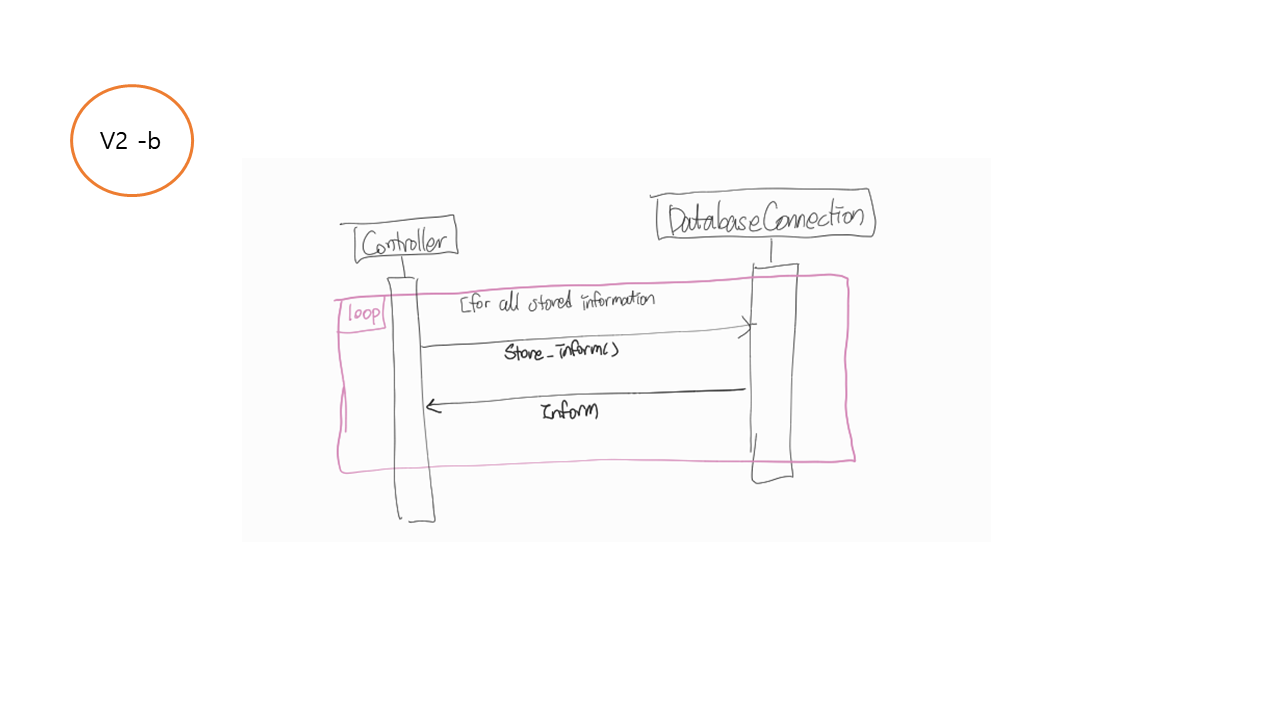 V2 -b
Controller
DatabaseConnection
loop
[for all stored information
Store_inform()
Inform